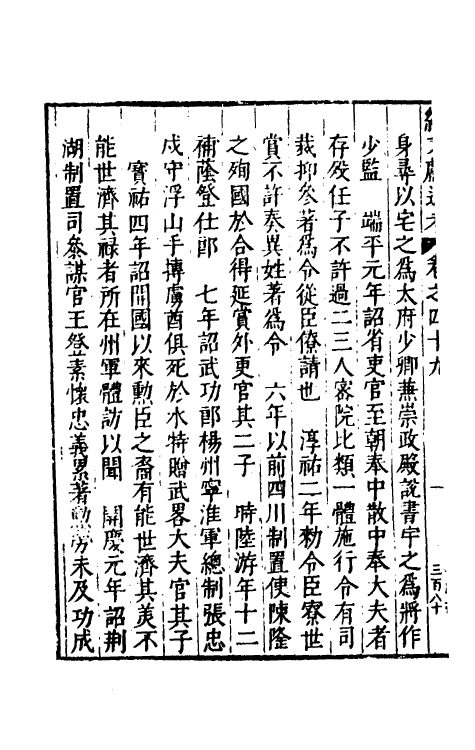 續文獻通考 卷之四十九 三百八十
身尋以宅之爲太府少卿兼崇政殿說書宇之爲將作
少監　端平元年詔省吏官至朝奉中散中奉大夫者
存歿任子不許過二三人密院比類一體施行令有司
裁抑參著爲令從臣僚請也　淳祐二年勑令臣寮世
賞不許奏異姓著爲令　六年以前四川制置使陳隆
之殉國於合得延賞外更官其二子　時陸游年十二
補蔭登仕郎　七年詔武功郎楊州寧淮軍總制張忠
戍守浮山手摶虜酋俱死於水特贈武畧大夫官其子
寳祐四年詔開國以來勲臣之裔有能世濟其美不
能世濟其祿者所在州軍體訪以聞　開慶元年詔荆
湖制置司叅謀官王登素懷忠義累著勳勞未及功成